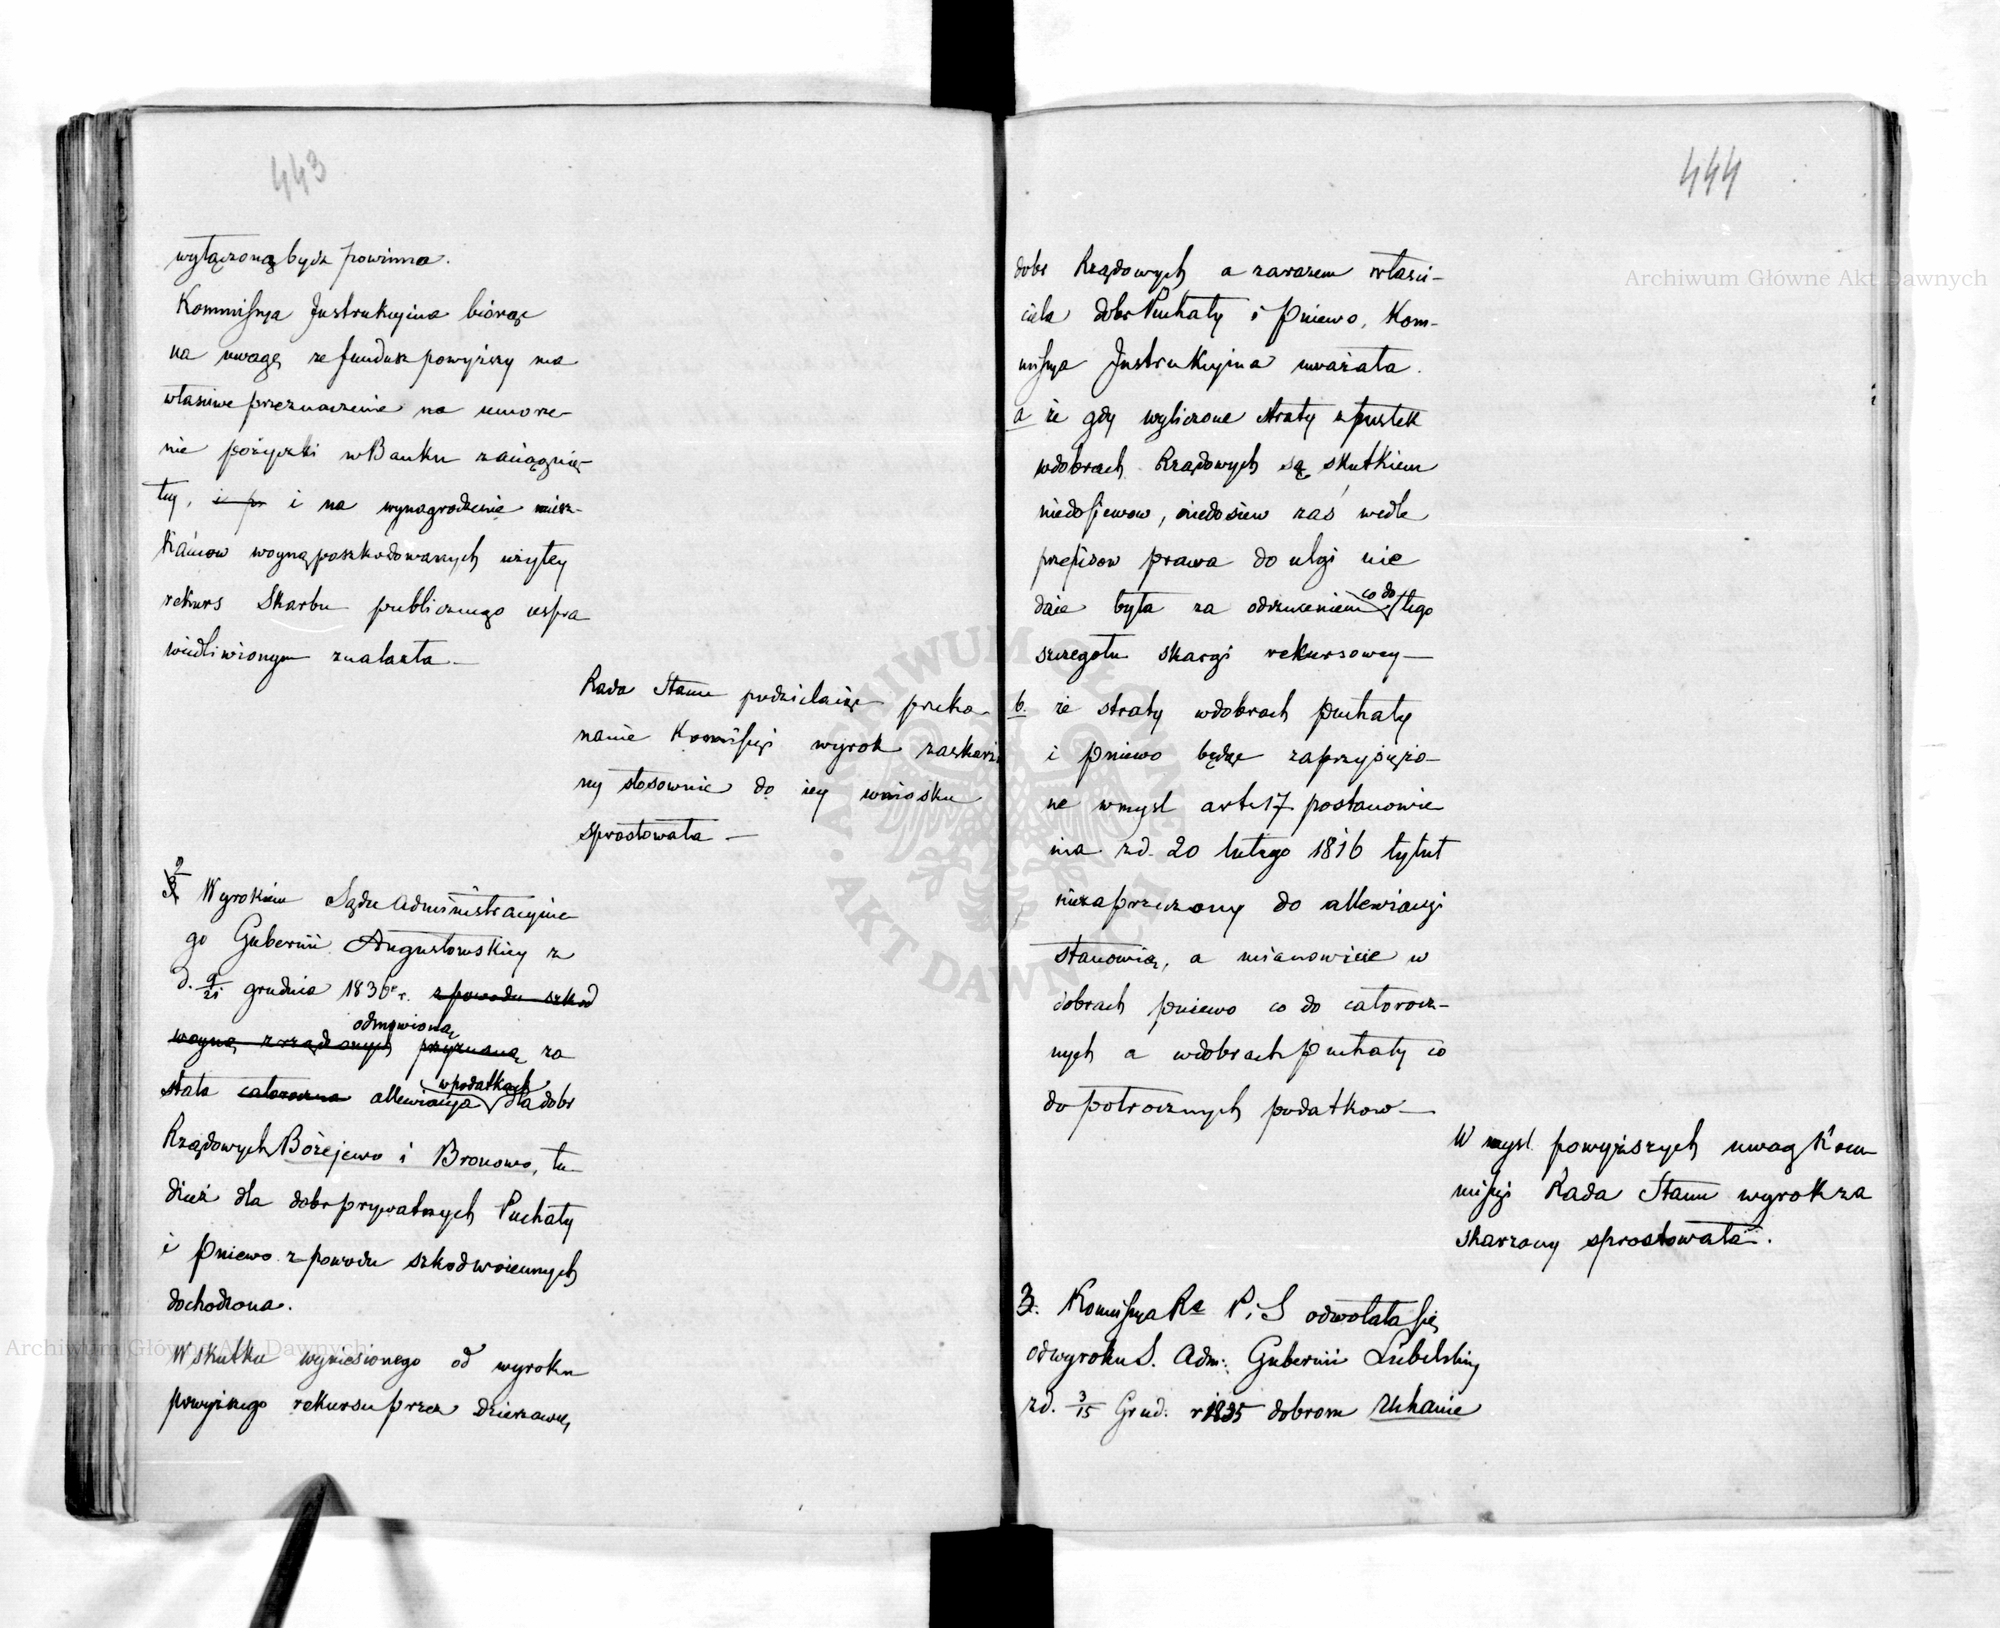 443
wyłączoną bydź powinna.
Kommissya Instrukcyina biorąc
na uwagę, że fundusz powyższy ma
właściwe przeznaczenie na umorze-
nie pożyczki w Banku zaciągnię-
tey, i pr i na wynagrodzenie miesz-
kańcow woyną poszkodowanych użytey
rekurs Skarbu publicznego uspra
wiedliwionym znalazła —
Rada Stanu podzielaiąc przeko
nanie Kommissyi wyrok zaskarżo
ny stosownie do iey wniosku
sprostowała —
2 Wyrokiem Sądu Administracyine
go Gubernii Augustowskiey z
d. 9/21 grudnia 1836 r. z powodu szkod
odmowioną
woyną zrządzonych przyznaną zo
w podatkach
stała całoroczna allewiacya dla dobr
Rządowych Bożejewo i Bronowo, tu
dzież dla dobr prywatnych Puchały
i Pniewo z powodu szkod woiennych
dochodzona.
W skutku wyniesionego od wyroku
powyższego rekursu przez Dzierżawcę
444
dobr Rządowych a zarazem właści-
ciela dobr Puchały i Pniewo, Kom-
missya Instrukcyina uważała.
a że gdy wyliczone straty z pustek
w dobrach Rządowych są skutkiem
niedosiewow, niedosiew zaś wedle
przepisow prawa do ulgi nie
co do
daie była za odrzuceniem tego
szczegołu skargi rekursowey —
b. że straty w dobrach Puchały
i Pniewo będąc zaprzysiężo-
ne w mysl art. 17 postanowie
nia z d. 20 lutego 1816 tytuł
niezaprzeczony do allewiacyi
stanowią, a mianowicie w
dobrach Pniewo co do całorocz-
nych a w dobrach Puchały co
do połrocznych podatkow —
W mysl powyższych uwag Kom
missyi Rada Stanu wyrok za
skarżony sprostowała.
3. Kommissya Rz P. i S odwołała się
od wyroku S. Adm: Gubernii Lubelskiey
z d. 3/15 Grud. r 1835 dobrom Uchanie
Archiwum Główne Akt Dawnych
Archiwum Główne Akt Dawnych
ARCHIWUM GŁÓWNE AKT DAWNYCH